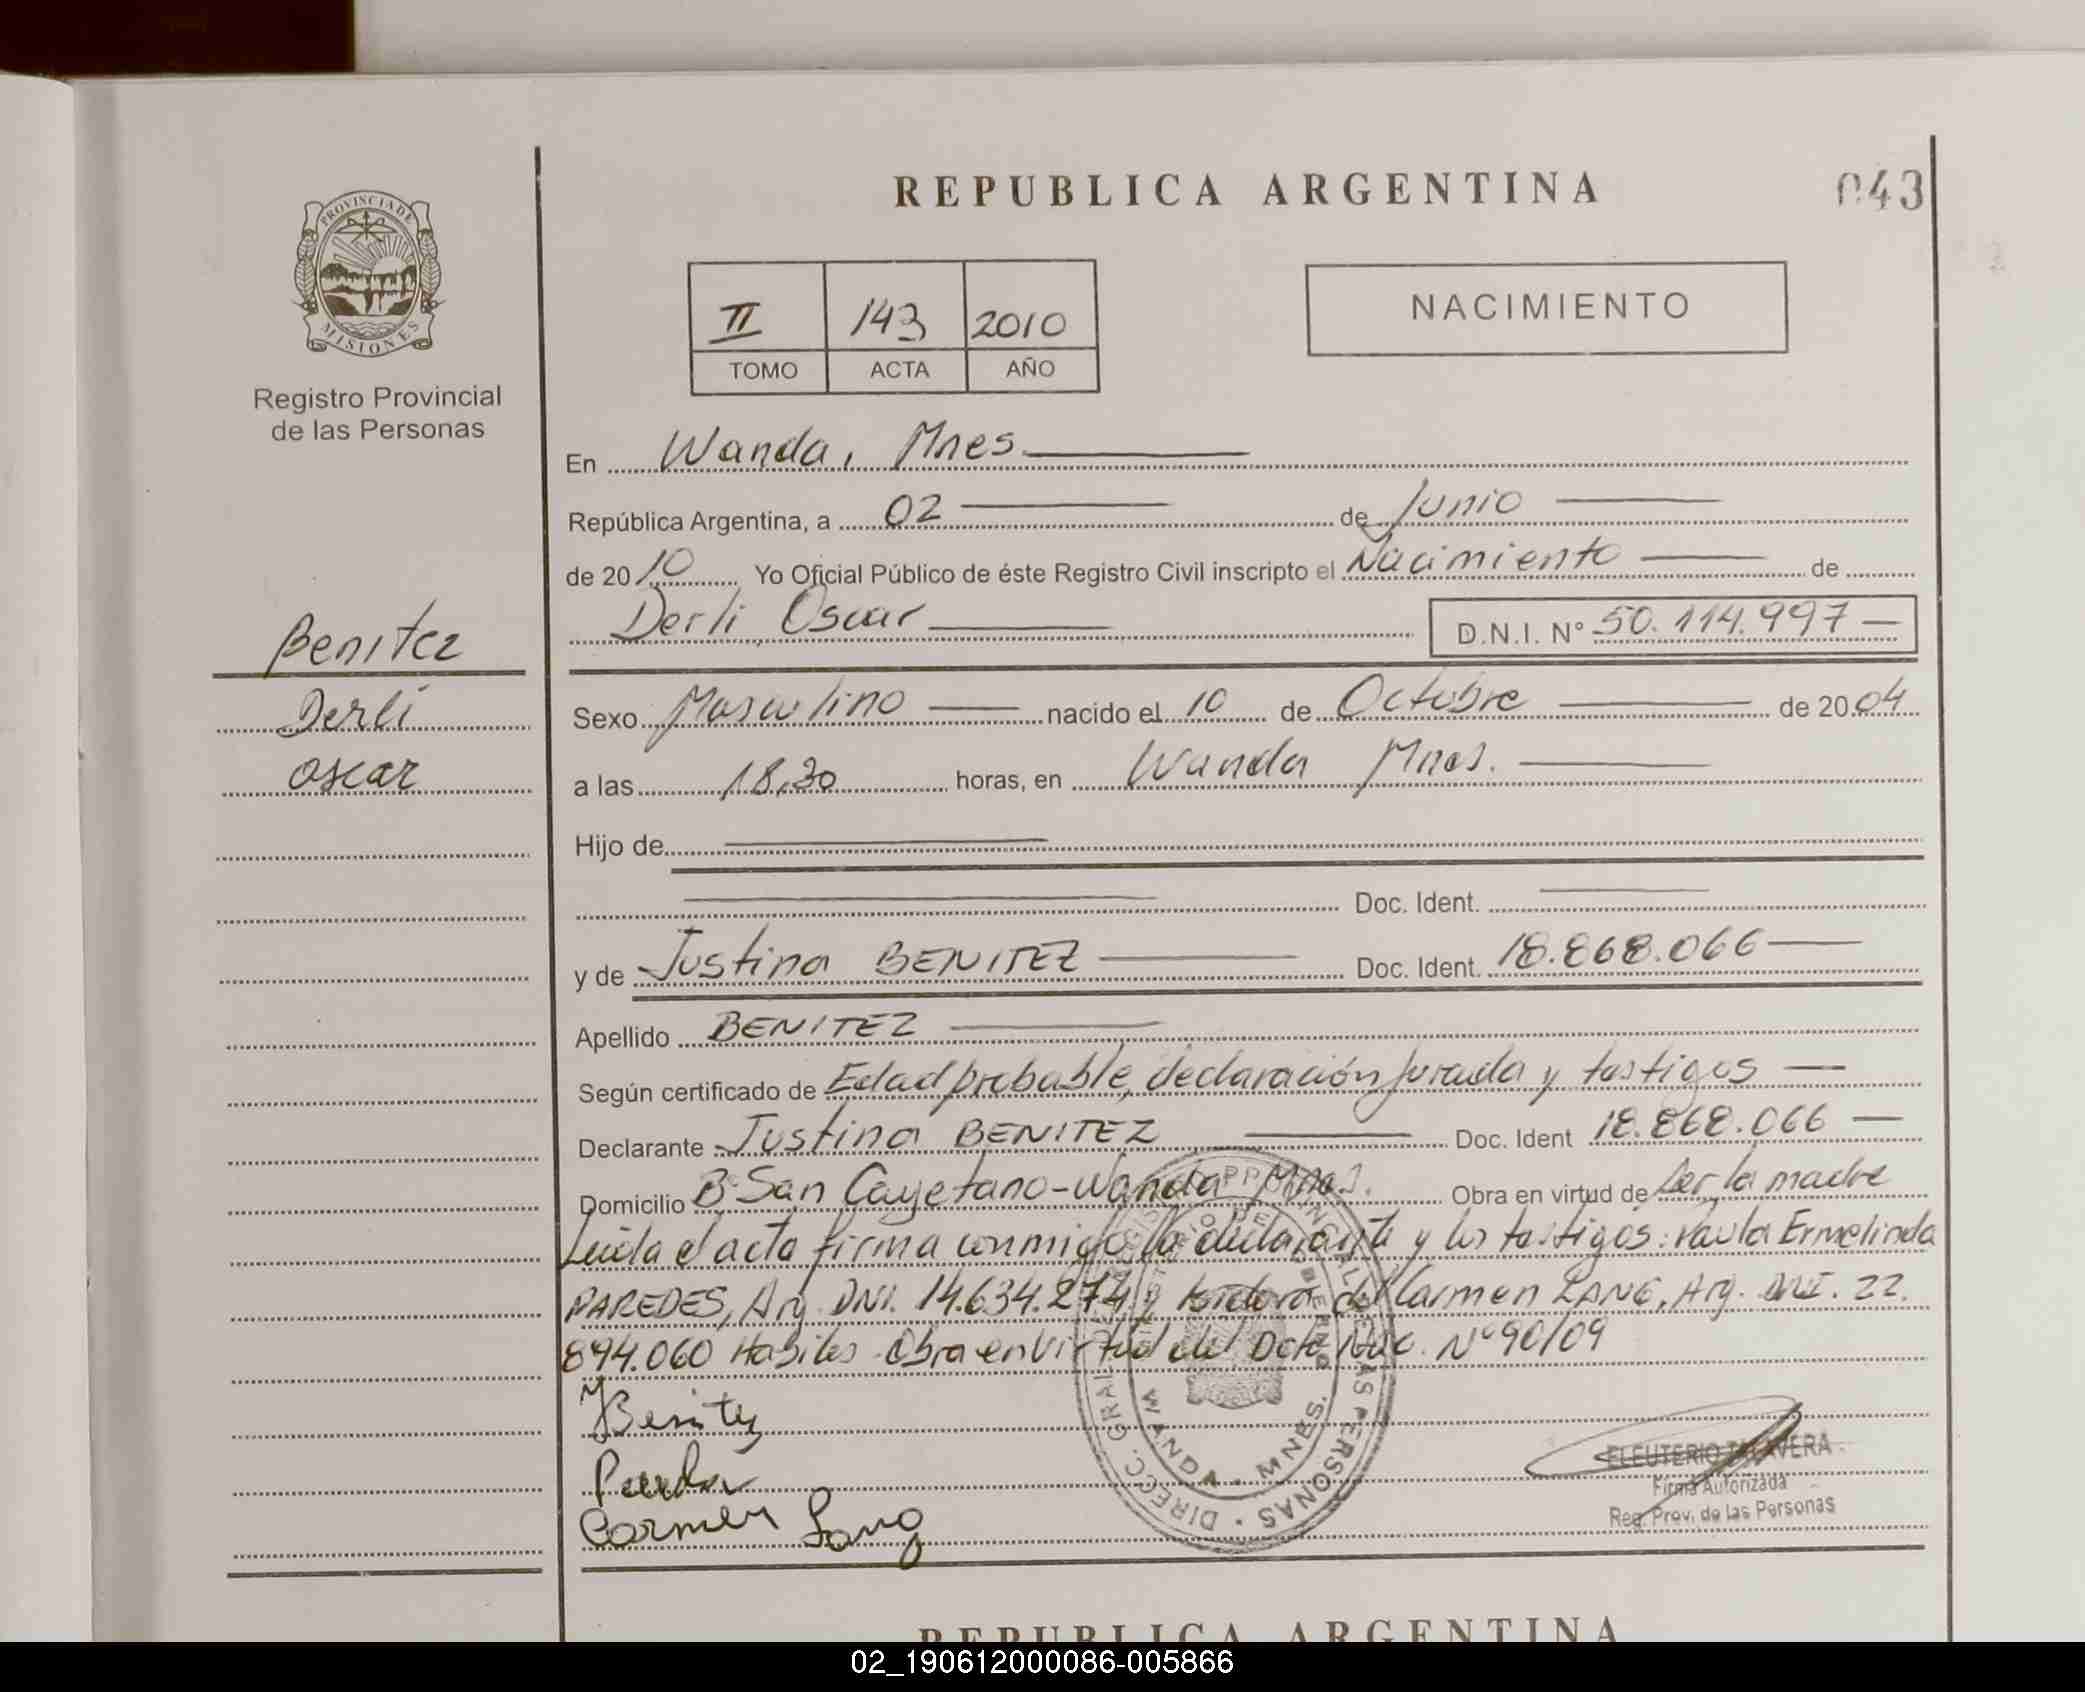 REPUBLICA ARGENTINA
043
PROVINCIA DE
MISIONES
Registro Provincial
de las Personas
II 143 2010
TOMO ACTA AÑO
NACIMIENTO
En Wanda, Mnes.
República Argentina, a 02 de Junio
de 2010 Yo Oficial Público de éste Registro Civil inscripto el Nacimiento de
Derli Oscar D.N.I. N° 50.114.997
Benitez
Derli
Oscar
Sexo Masculino nacido el 10 de Octubre de 2004
a las 18,30 horas, en Wanda Mnes.
Hijo de
Doc. Ident.
y de Justina BENITEZ Doc. Ident. 18.868.066
Apellido BENITEZ
Según certificado de Edad probable, declaración jurada y testigos
Declarante Justina BENITEZ Doc. Ident 18.868.066
Domicilio B° San Cayetano-Wanda Mnes. Obra en virtud de ser la madre
Leida el acta firma conmigo la declarante y los testigos: Paula Ermelinda
PAREDES, Arg. DNI. 14.634.274 y Isidora del Carmen LANG, Arg. DNI. 22.
894.060 Habiles. Obra en virtud del Dcto Nac. N° 90/09
Benitez
Carmen Lang
DIRECC. GRAL. PERSONAS
WANDA - MNES.
ELEUTERIO TALAVERA
Firma Autorizada
Reg. Prov. de las Personas
REPUBLICA ARGENTINA
02_190612000086-005866